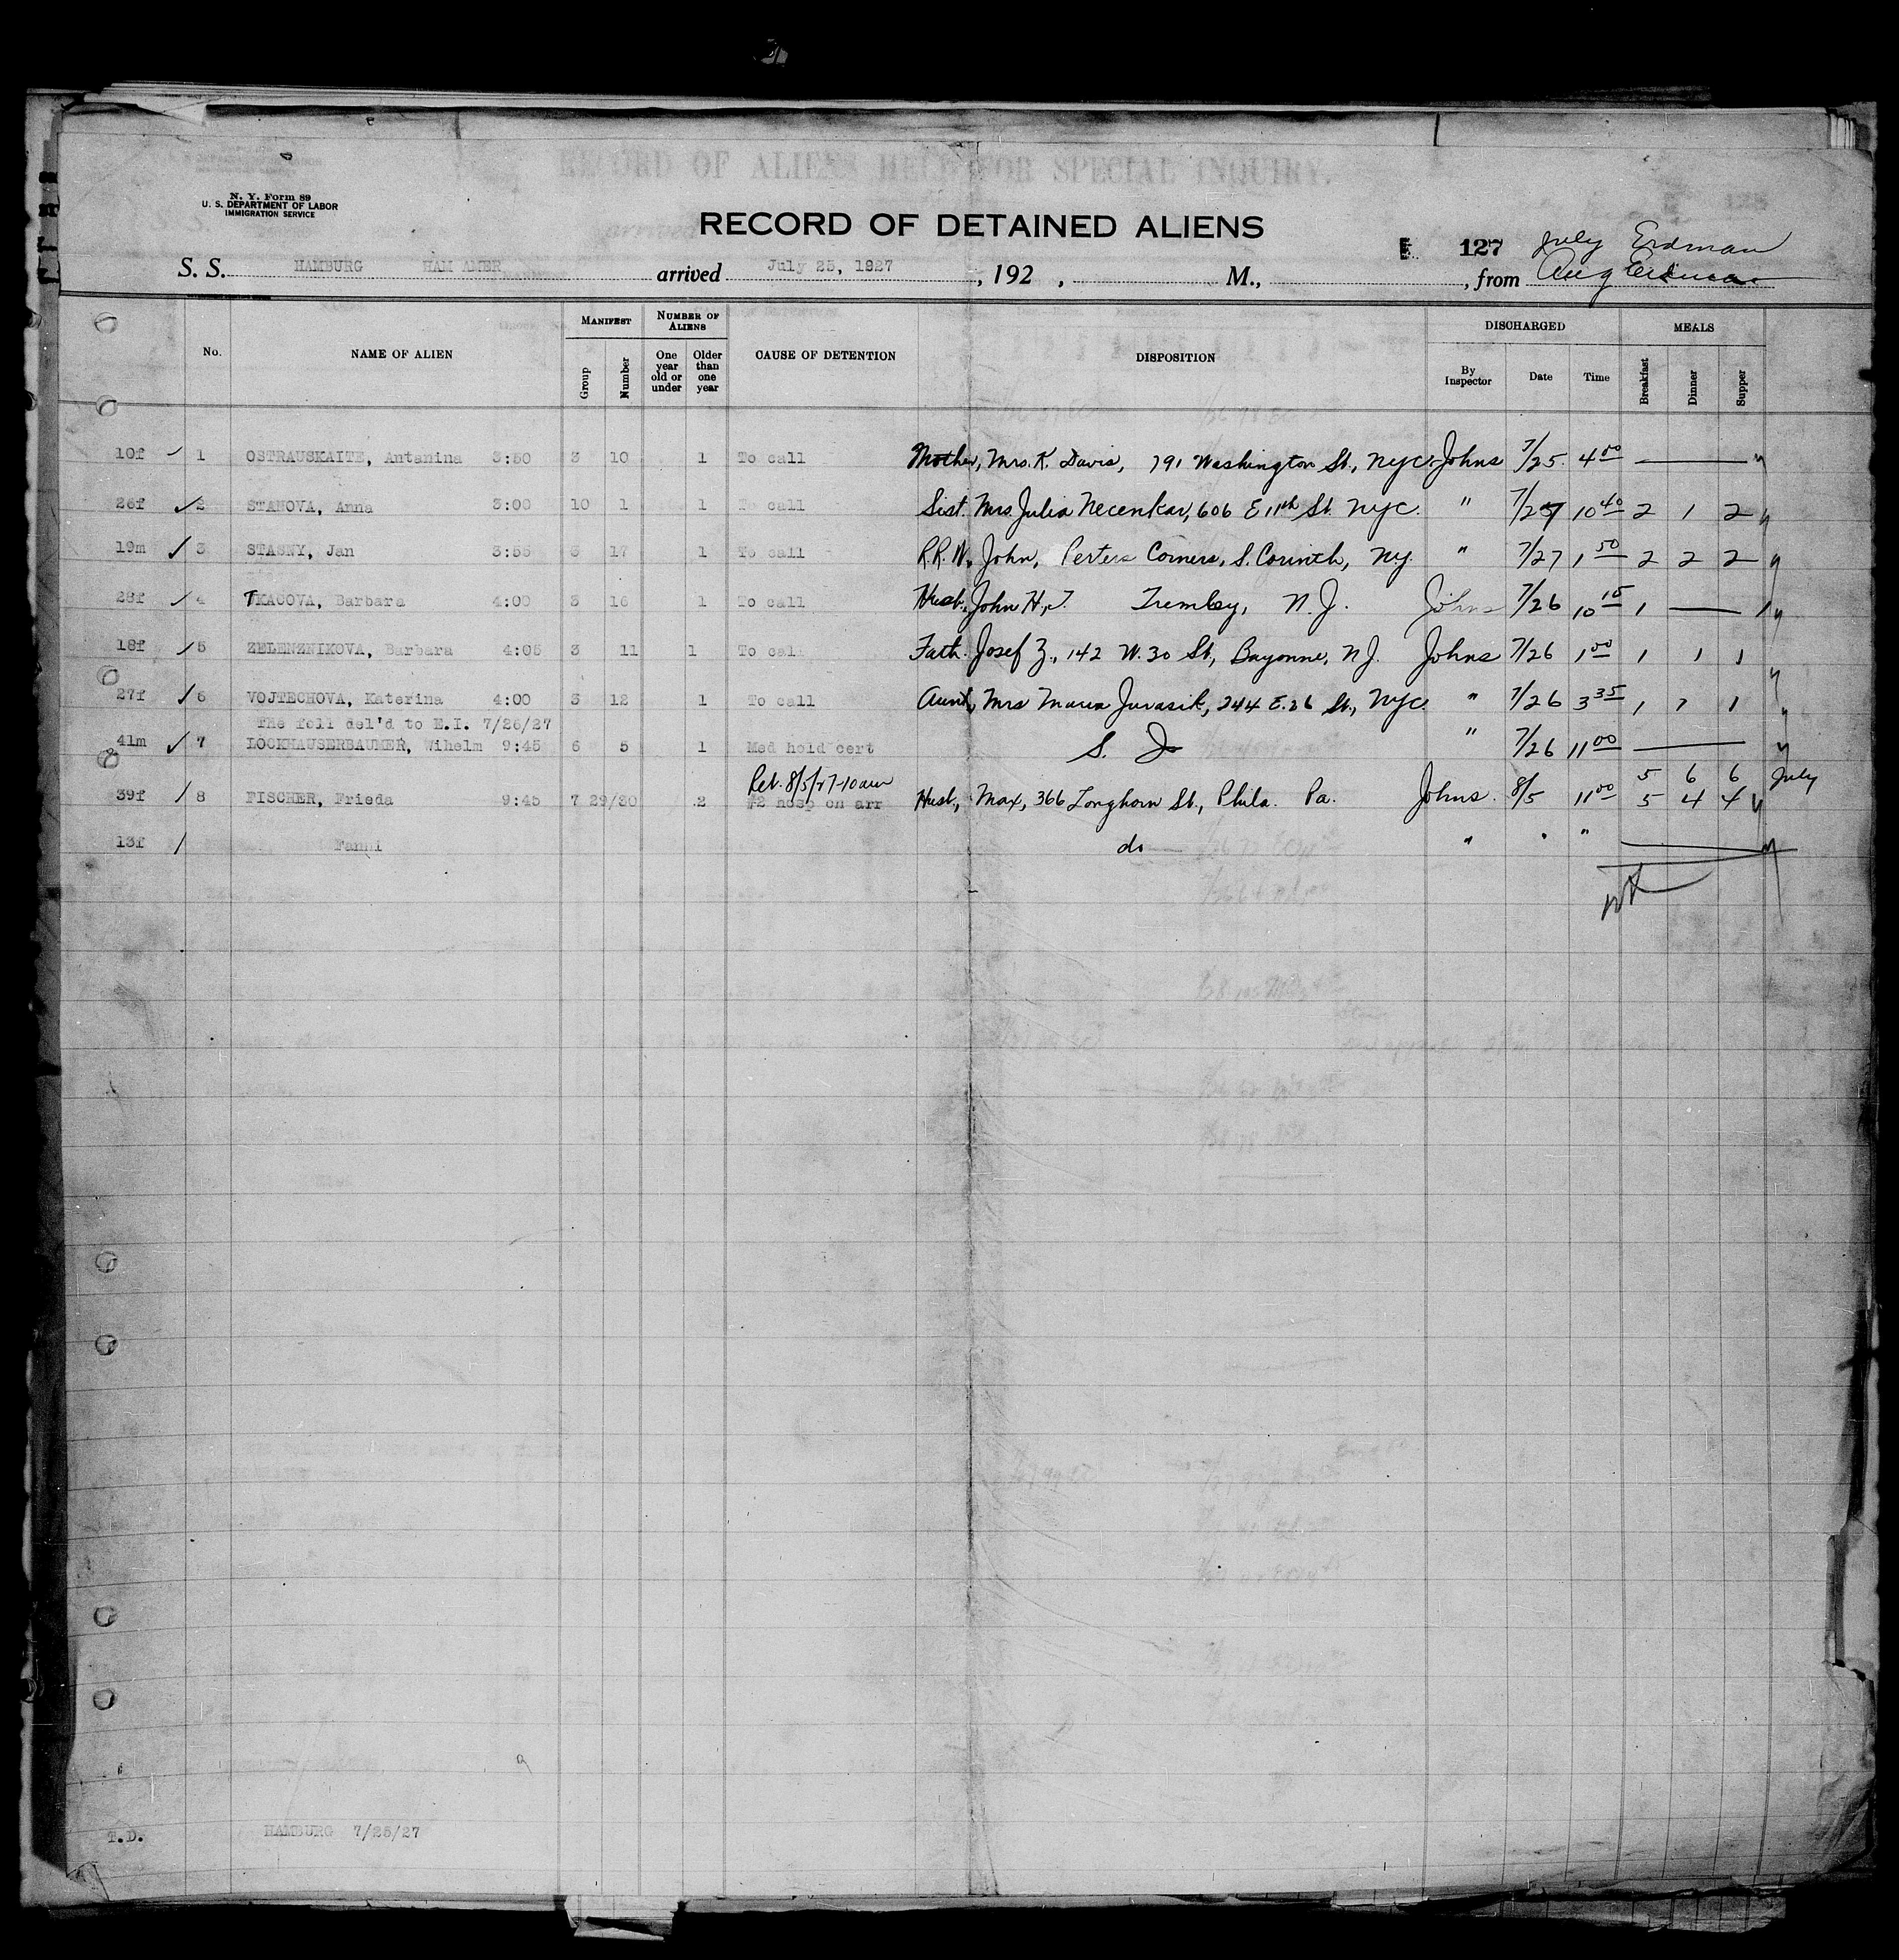 N. Y. Form 89
U. S. DEPARTMENT OF LABOR
IMMIGRATION SERVICE
RECORD OF ALIENS HELD FOR SPECIAL INQUIRY.
RECORD OF DETAINED ALIENS
127 July Erdman
S. S. HAMBURG HAM AMER arrived July 25, 1927, 192 , M., , from Aug Erdman
No. NAME OF ALIEN MANIFEST Group Number NUMBER OF ALIENS One year old or under Older than one year CAUSE OF DETENTION DISPOSITION DISCHARGED By Inspector Date Time MEALS Breakfast Dinner Supper
10f 1 OSTRAUSKAITE, Antanina 3:50 3 10 1 To call Mother, Mrs. K. Davis, 791 Washington St., NYC. Johns 7/25 4 00
26f 2 STANOVA, Anna 3:00 10 1 1 To call Sist. Mrs. Julia Necenkar, 606 E 11th St. NYC. " 7/27 10 40 2 1 2
19m 3 STASNY, Jan 3:55 3 17 1 To call R.R. N. John, Perters Corners, S. Corinth, N.Y. " 7/27 1 50 2 2 2
28f 4 TKACOVA, Barbara 4:00 3 16 1 To call Husb. John H. T. Trembley, N. J. Johns 7/26 10 15 1 1
18f 5 ZELENZNIKOVA, Barbara 4:05 3 11 1 To call Fath. Josef Z., 142 W. 30 St, Bayonne, N J. Johns 7/26 1 00 1 1 1
27f 6 VOJTECHOVA, Katerina 4:00 3 12 1 To call Aunt, Mrs Maria Jurasik, 244 E. 26 St., NYC. " 7/26 3 35 1 1 1
The foll del'd to E.I. 7/26/27
41m 7 LOCKHAUSERBAUMER, Wihelm 9:45 6 5 1 Med hold cert S. I. " 7/26 11 00
Ret. 8/5/27-10am 5 6 6 July
39f 8 FISCHER, Frieda 9:45 7 29/30 2 #2 hosp on arr Husb, Max, 366 Longhorn St., Phila. Pa. Johns. 8/5 11 00 5 4 4
13f Fanni do " " "
T.D. HAMBURG 7/25/27